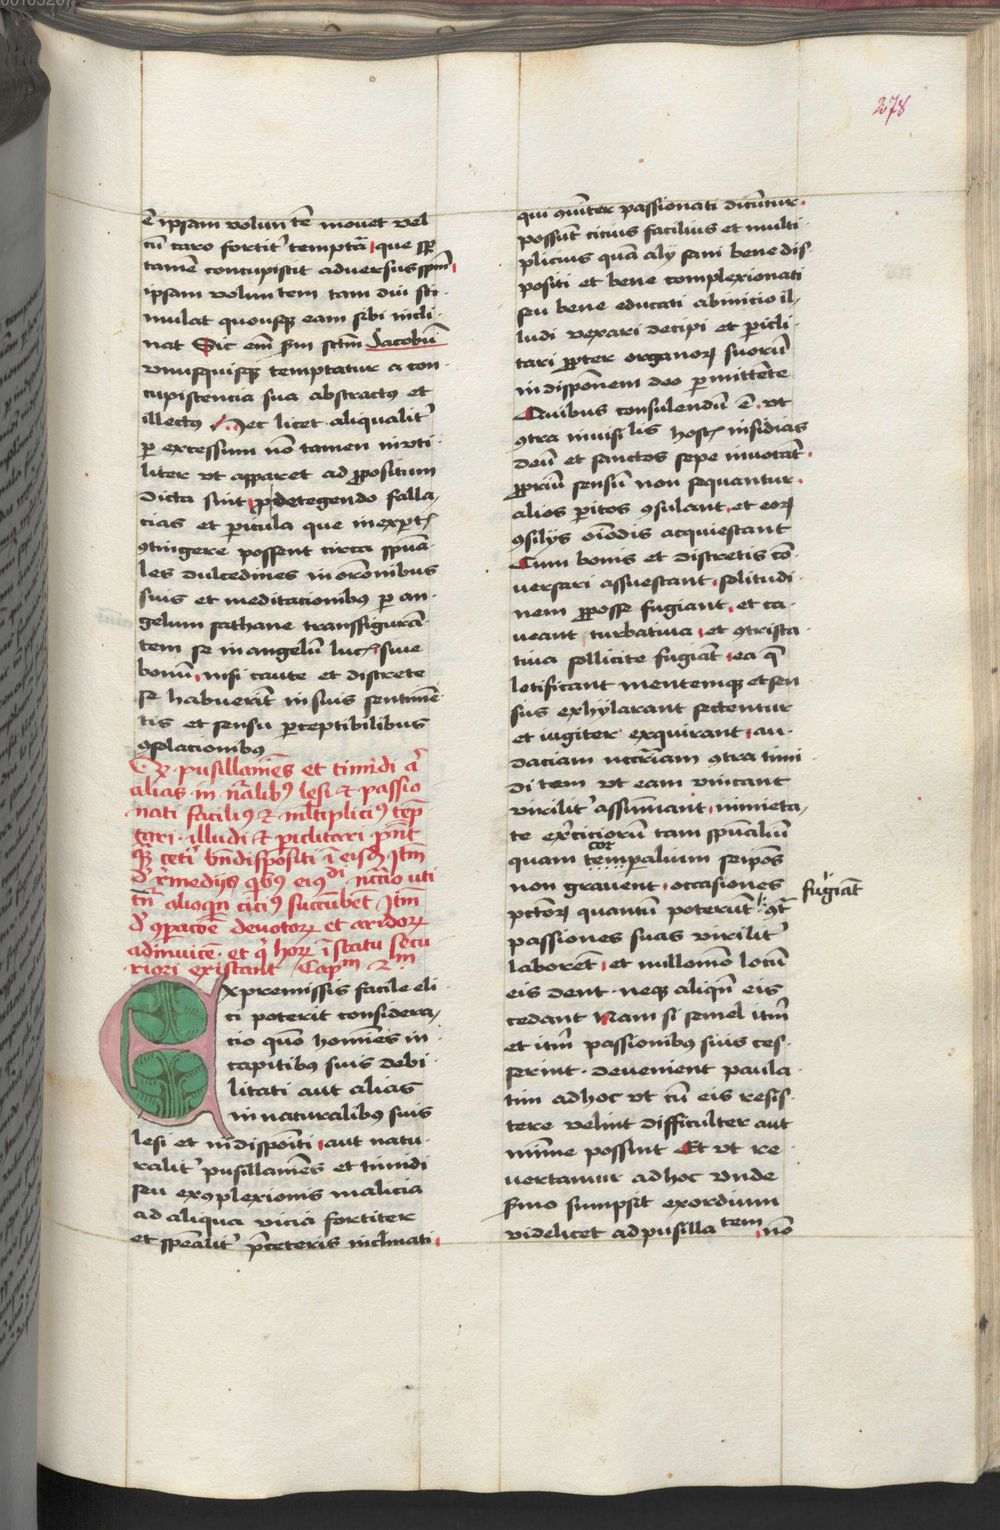 278
ē ipsam voluntē mouet vel
cū caro fortit' temptā que spr̄
tamē concupiscit aduersus spm̄
ipsam voluntem tam diu sti-
mulat quousq3 eam sibi incli-
nat Sic em̄ scdm Jacobū
vnusquisq3 temptatur a con-
cupiscencia sua abstractus et
illectus Hec licet aliqualit'
per excessum nō tamen invti-
liter vt apparet ad propositum
dicta sint pro detegendo falla-
cias et pericula que inexpertis
9tingere possent circa spūa-
les dulcedines in orōnibus
suis et meditacionibus per an-
gelum sathane transfigurā-
tem se in angelū lucis siue
bonū nisi caute et discrete
se habuerīt in suis sentimē-
tis et sensu perceptibilibus
9solacionibus
Qd pusillanīes et timidi aut
alias in nālibus lesi et passio
nati facilius et mltiplicius tēp
tari illudi et piclitari pn̄t
qz ceti bn̄ dispositi ī eisdem Itm̄
de remedijs quibus eis nccīo uti
alioqn cicius succūbēt Itm̄
de 9pacōe deuotorum et aridorum
adinuicē et qui horum ī statu secu
riori existant Capm 2m
Ex premissis facile eli-
ci poterit considera-
cio quō homīes in
capitibus suis debi-
litati aut alias
in naturalibus suis
lesi et indispositi aut natu-
ralit' pusillanīes et timidi
seu ex 9plexionis malicia
ad aliqua vicia fortiter
et spēalit' preceteris inclinati
qui 9muniter passionati dicūtur
possūt cicius facilius et multi
plicius quā alij sani bene dis-
positi et bene complexionati
seu bene educati abinicio il-
ludi vexari decipi et pericli-
tari propter organorum suorū
indisponem deo permittēte
Quibus consulendū ē vt
9tra inuisibilis hostis insidias
deū et sanctos sepe inuocāt
propriū sensū non sequantur
alios peritos 9sulant et eorum
9silijs oīmodis acquiescant
Cum bonis et discretis cō-
uersari assuescant solitudi-
nem proposse fugiant et ca-
ueant turbatiua et 9trista-
tiua sollicite fugiāt ea que
letificant mentemq3 et sen
sus exhylarant sectentur
et iugiter exquirant au-
daciam nccāriam 9tra timi-
ditem vt eam vincant
virilit' assumant nimieta-
te exerciciorū tam spūaliū
quam temporalium seipōs
cor
non grauent occasiones
pctorum quantū poterūt 9t
fugiāt
passiones suas virilit'
laborēt et nullomō locū
eis dent neq3 aliqn̄ eis
cedant Nam si semel itm̄
et itm̄ passionibus suis ces-
serint deuenient paula-
tim adhoc vt cū eis resis-
tere velint difficulter aut
minime possint Et vt re-
uertamur adhoc vnde
sermo sumpsit exordium
videlicet ad pusillatem nō